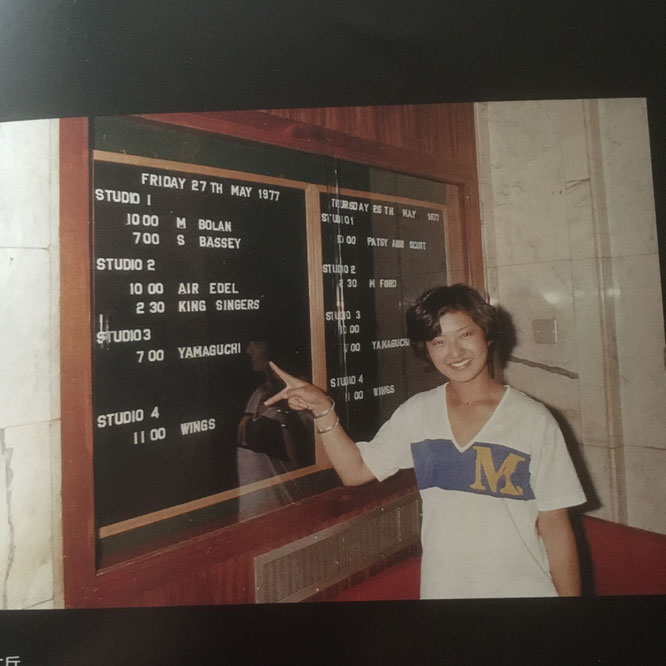 FRIDAY 27TH MAY 1977
STUDIO 1
10 00 M BOLAN
7 00 S BASSEY
STUDIO 2
10 00 AIR EDEL
2 30 KING SINGERS
STUDIO3
7 00 YAMAGUCHI
STUDIO 4
11 00 WINGS
THURSDAY 26TH MAY 1977
STUDIO1
10 00 PATSY ANN SCOTT
STUDIO 2
2 30 M FORD
STUDIO 3
10 00
7 00 YAMAGUCHI
STUDIO 4
11 00 WINGS
M
丘